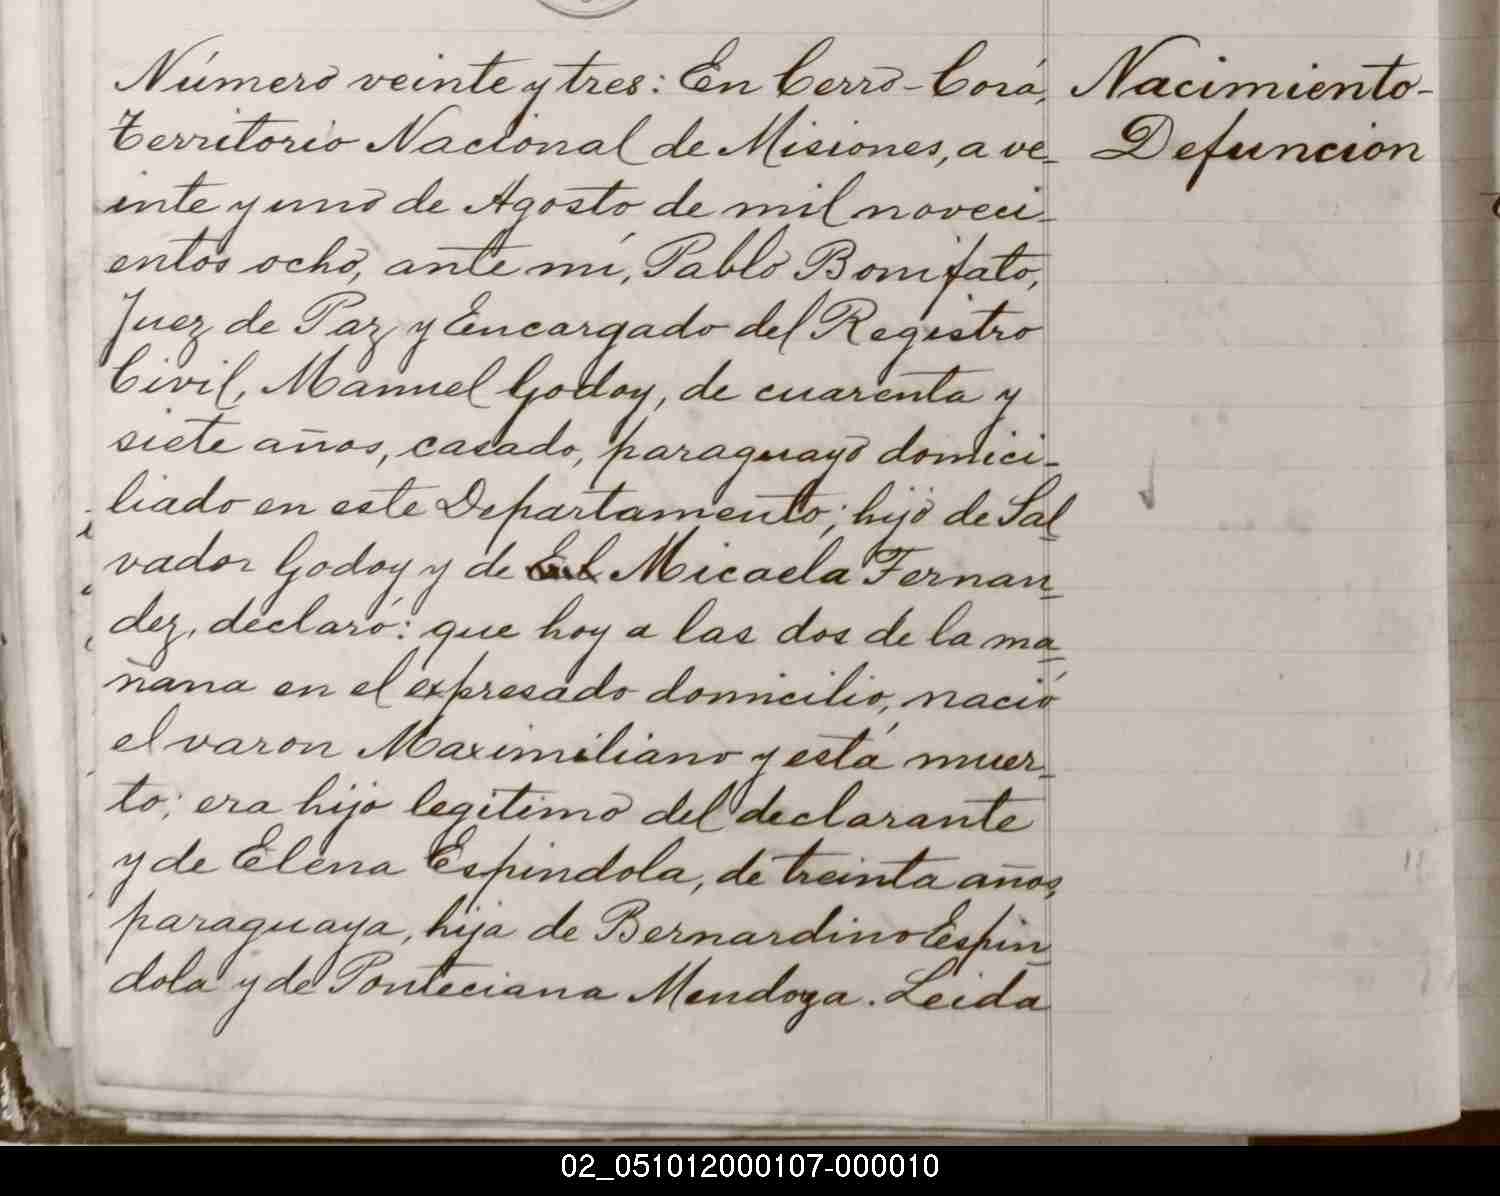 Número veinte y tres: En Cerro-Corá,
Territorio Nacional de Misiones, a ve-
inte y uno de Agosto de mil noveci-
entos ocho, ante mí, Pablo Bonifato,
Juez de Paz y Encargado del Registro
Civil, Manuel Godoy, de cuarenta y
siete años, casado, paraguayo domici-
liado en este Departamento; hijo de Sal-
vador Godoy y de Micaela Fernan-
dez, declaró: que hoy a las dos de la ma-
ñana en el expresado domicilio, nació
el varon Maximiliano y está muer-
to; era hijo legitimo del declarante
y de Elena Espindola, de treinta años,
paraguaya, hija de Bernardino Espin-
dola y de Ponteciana Mendoza. Leida
Nacimiento-
Defuncion
02_051012000107-000010